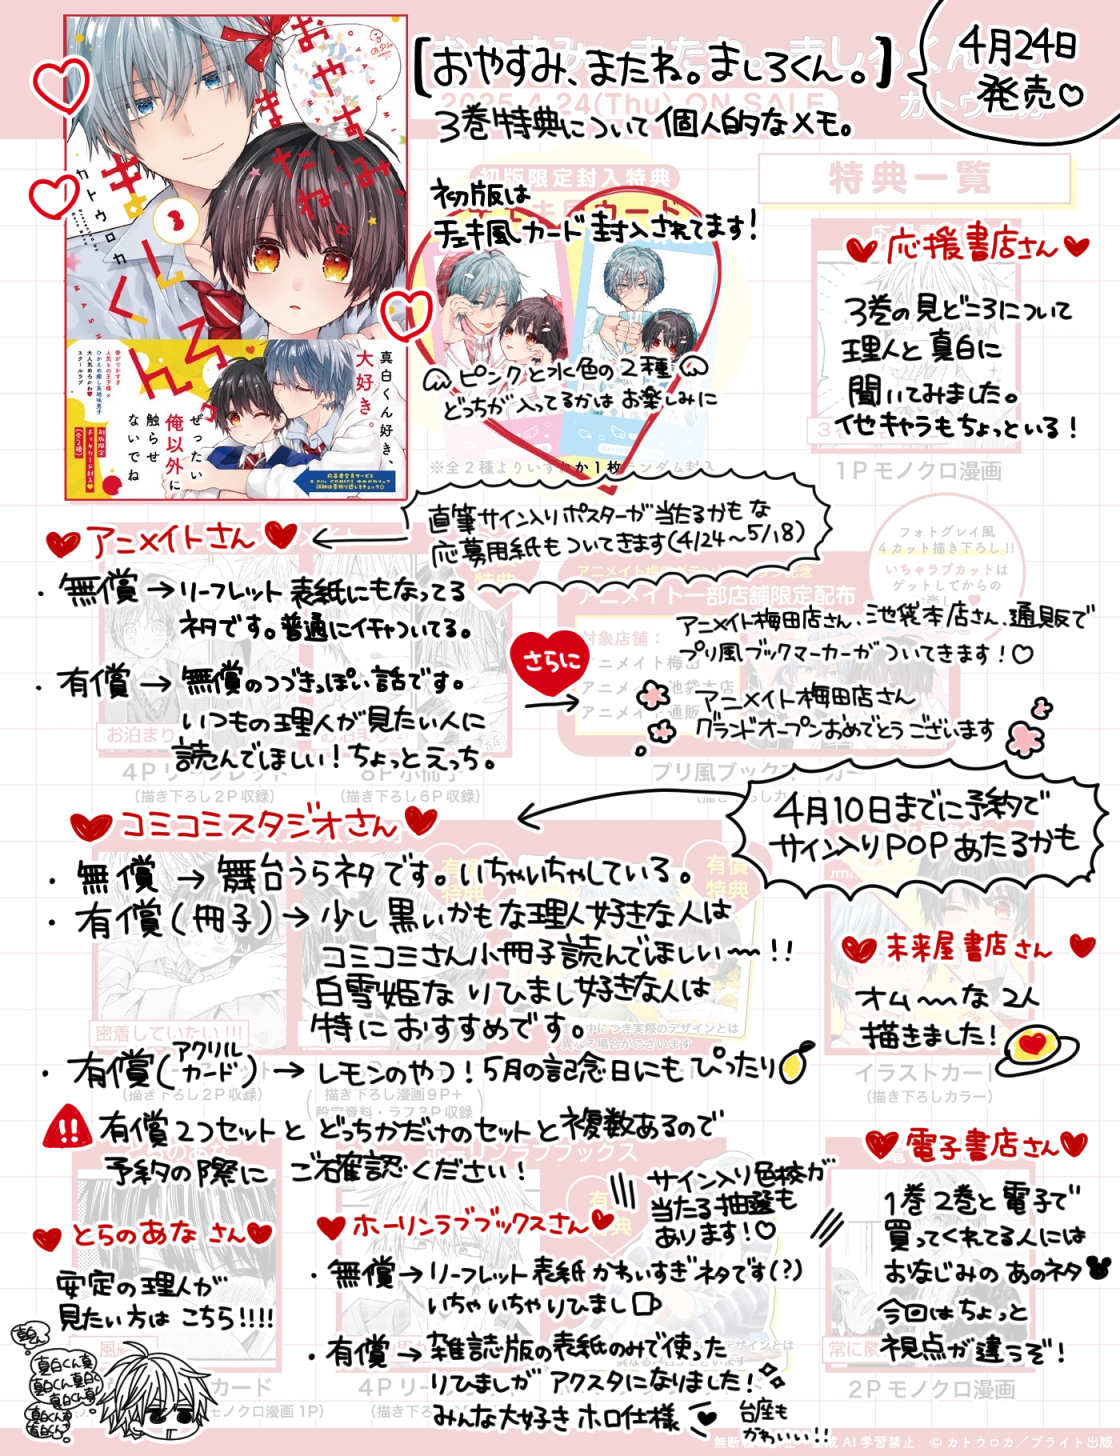 [おやすみ、またね。ましろくん。]
3巻特典について個人的なメモ。
4月24日
発売♡
おやすみ、またね。ましろくん。
カトウロカ
3
真白くん好き、大好き。
ぜったい俺以外に触らせないでね
初版限定封入特典
初版は
チェキ風カード封入されてます!
ピンクと水色の2種
どっちが入ってるかはお楽しみに
特典一覧
♥応援書店さん♥
3巻の見どころについて
理人と真白に
聞いてみました。
他キャラもちょっといる!
1Pモノクロ漫画
直筆サイン入りポスターが当たるかもな
応募用紙もついてきます(4/24〜5/18)
♥アニメイトさん♥
・無償→リーフレット表紙にもなってる
ネタです。普通にイチャついてる。
・有償→無償のつづきっぽい話です。
いつもの理人が見たい人に
読んでほしい!ちょっとえっち。
お泊まり
4Pリーフレット
(描き下ろし2P収録)
8P小冊子
(描き下ろし6P収録)
さらに
フォトグレイ風
4カット描き下ろし!!
いちゃラブカットは
ゲットしてからの
アニメイト一部店舗限定配布
対象店舗:
アニメイト梅田店さん、池袋本店さん、通販で
プリ風ブックマーカーがついてきます!♡
アニメイト梅田店さん
グランドオープンおめでとうございます
プリ風ブックマーカー
♥コミコミスタジオさん♥
4月10日までに予約で
サイン入りPOPあたるかも
・無償→舞台うらネタです。いちゃいちゃしている。
・有償(冊子)→少し黒いかもな理人好きな人は
コミコミさん小冊子読んでほしい〜!!
白雪姫なりひまし好きな人は
特におすすめです。
・有償(アクリルカード)→レモンのやつ!5月の記念日にもぴったり
密着していたい!!!
(描き下ろし2P収録)
描き下ろし漫画9P+
設定資料・ラフ3P収録
有償特典
有償特典
!!有償2つセットとどっちかだけのセットと複数あるので
予約の際にご確認ください!
♥未来屋書店さん♥
オム〜な2人
描きました!
イラストカード
(描き下ろしカラー)
♥とらのあなさん♥
安定の理人が
見たい方はこちら!!!!
♥ホーリンラブブックスさん♥
サイン入り色校が
当たる抽選も
あります!♡
・無償→リーフレット表紙かわいすぎネタです(?)
いちゃいちゃりひまし
・有償→雑誌版の表紙のみで使った
りひましがアクスタになりました!
みんな大好きホロ仕様
台座も
かわいい!!
♥電子書店さん♥
1巻2巻と電子で
買ってくれてる人には
おなじみのあのネタ
今回はちょっと
視点が違うぞ!
2Pモノクロ漫画
真白くん
真白くん真
真白くん真白く
© カトウロカ/ブライト出版